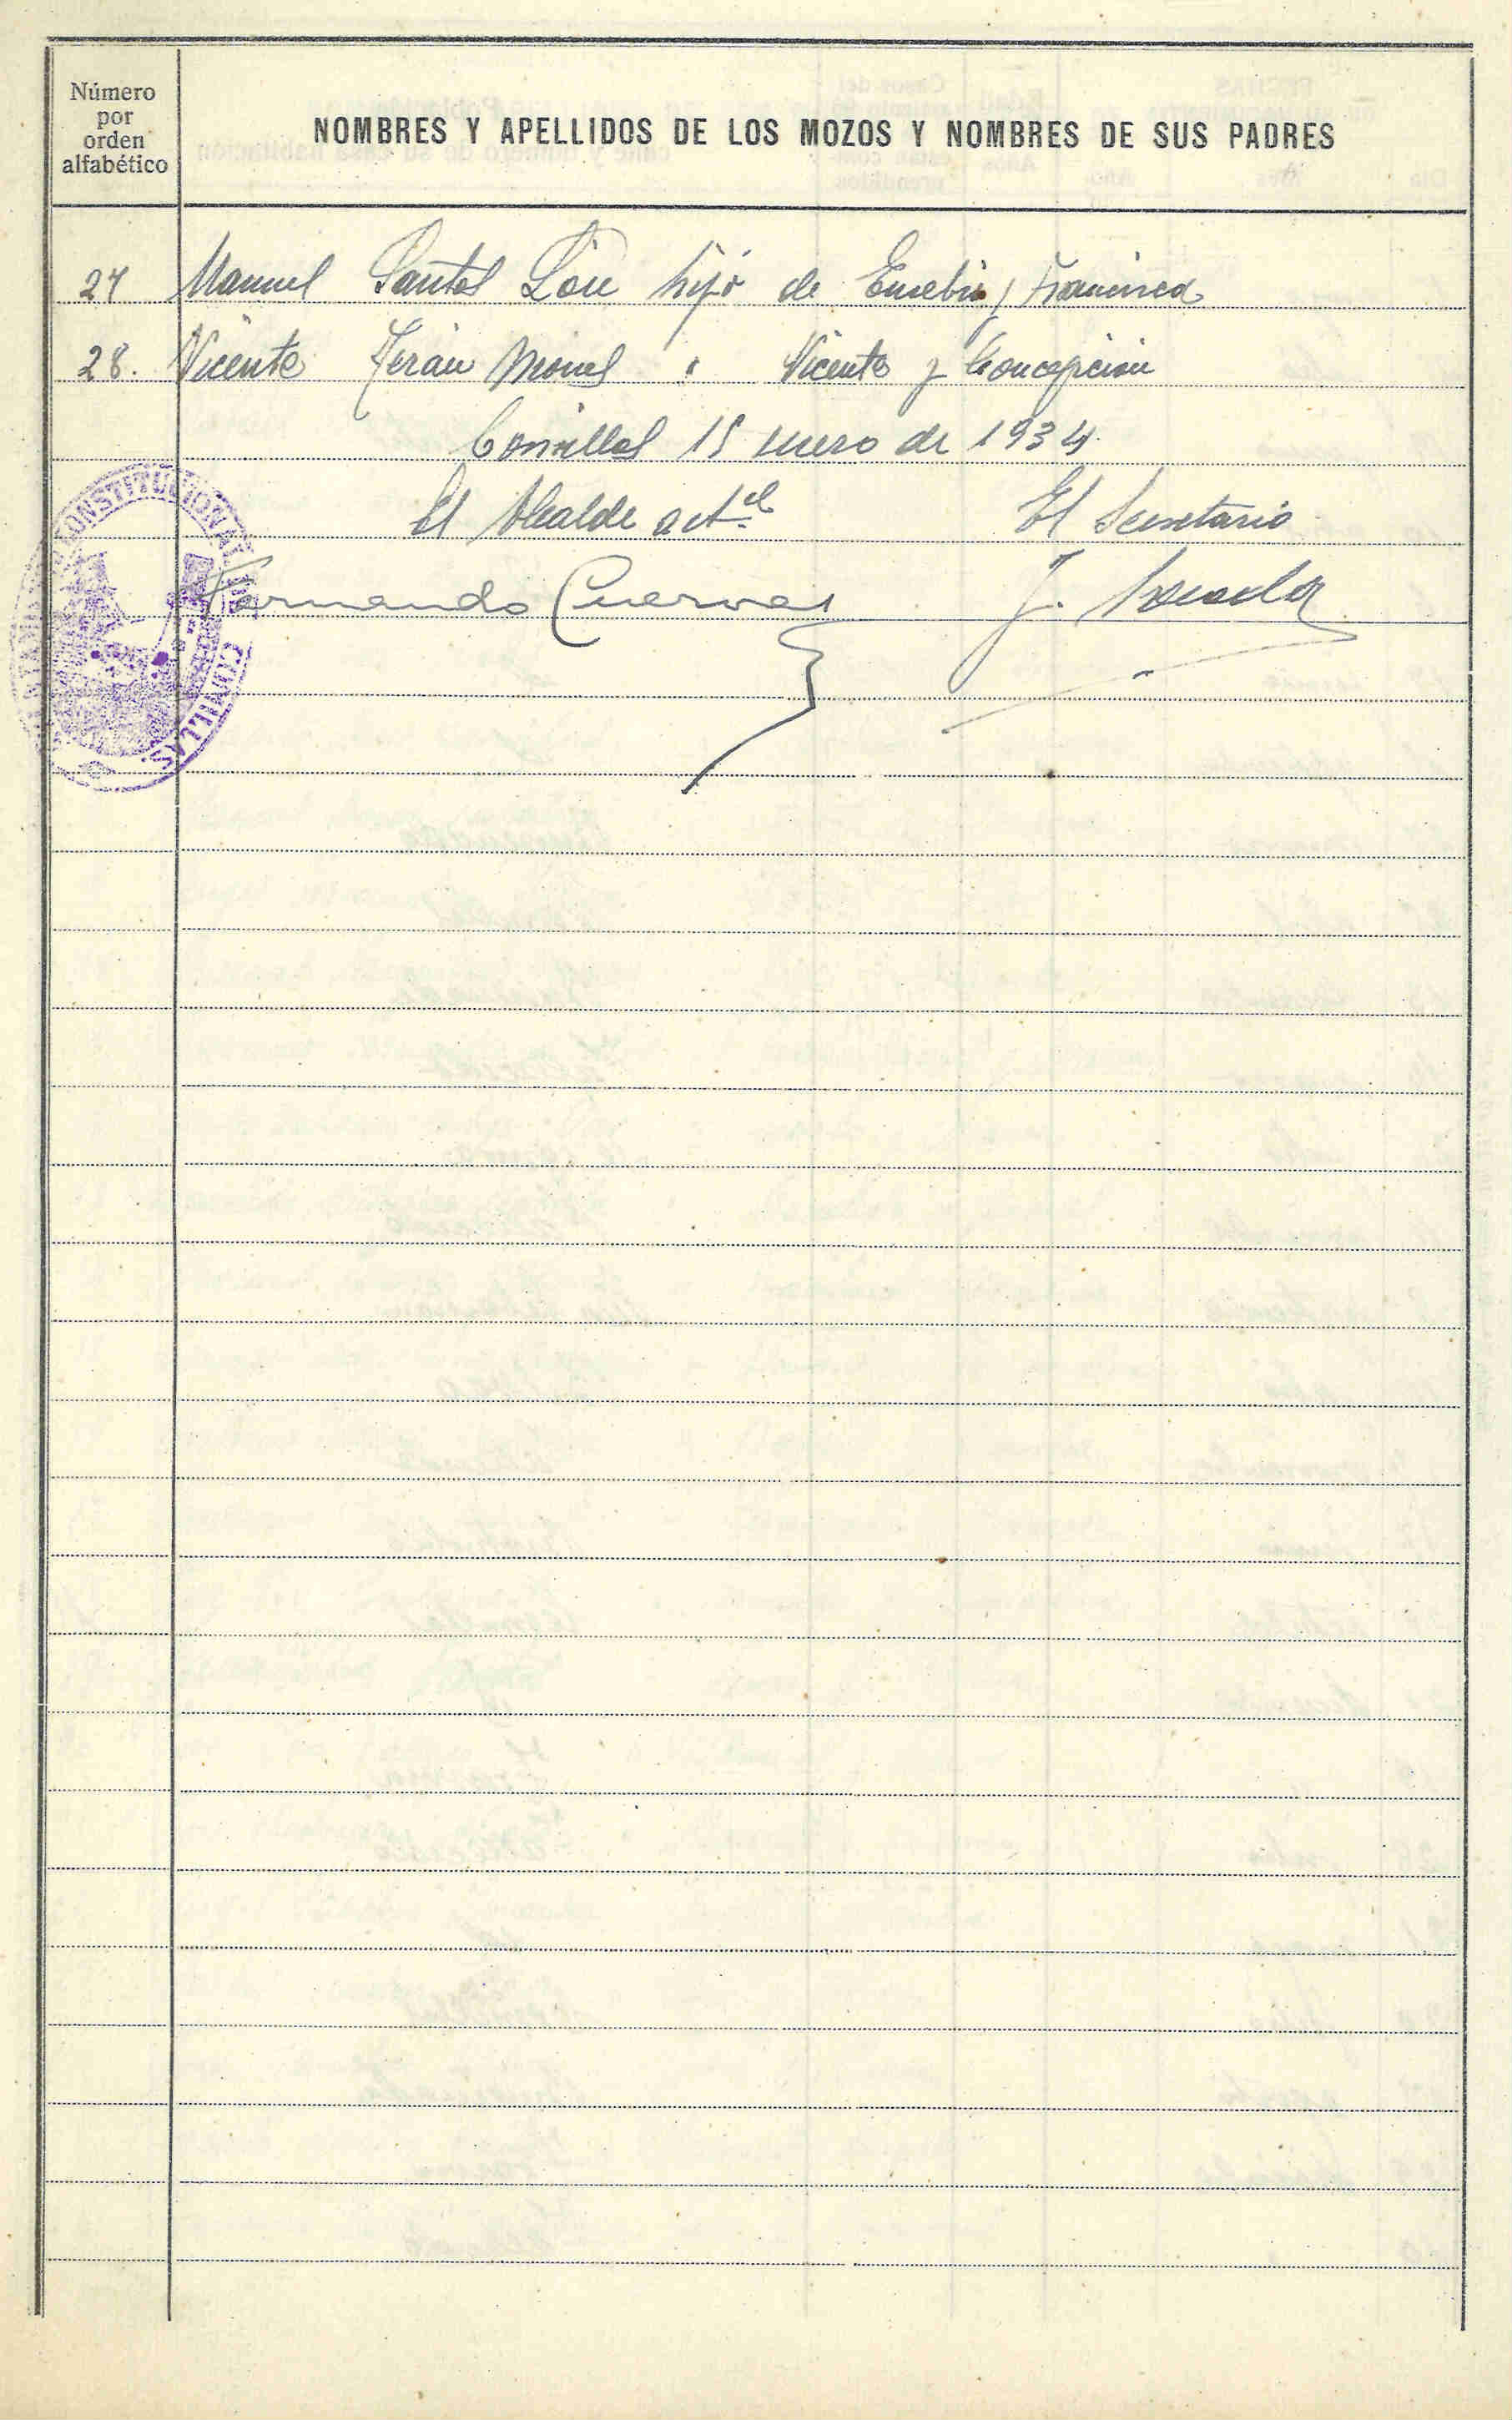 Número
por
orden
alfabético
NOMBRES Y APELLIDOS DE LOS MOZOS Y NOMBRES DE SUS PADRES
27 Manuel Santos hijo de Eusebio y Francisca
28. Vicente Terán " Vicente y Concepción
Comillas 15 enero de 1934.
El Alcalde actel El Secretario
Fernando Cuervas J.
CONSTITUCIONAL